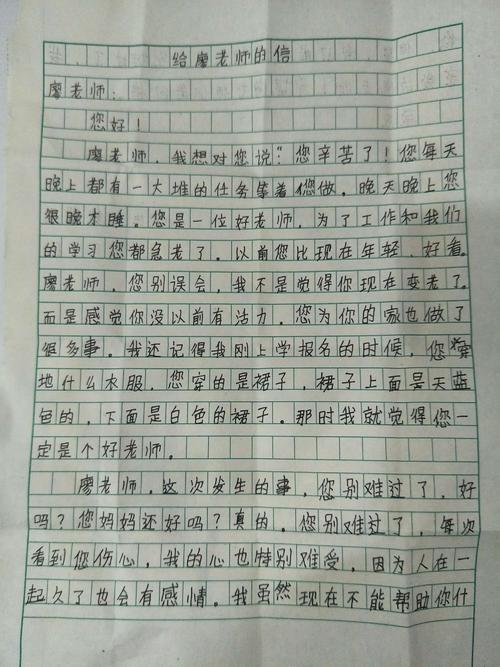 给廖老师的信
廖老师：
您好！
廖老师，我想对您说“您辛苦了！您每天
晚上都有一大堆的任务等着您做。晚天晚上您
很晚才睡。您是一位好老师，为了工作和我们
的学习您都急老了。以前您比现在年轻、好看。
廖老师，您别误会，我不是觉得你现在变老了。
而是感觉你没以前有活力。您为你的家也做了
很多事。我还记得我刚上学报名的时候，您穿
地什么衣服，您穿的是裙子，裙子上面是天蓝
色的，下面是白色的裙子。那时我就觉得您一
定是个好老师。
廖老师，这次发生的事，您别难过了，好
吗？您妈妈还好吗？真的，您别难过了，每次
看到您伤心，我的心也特别难受，因为人在一
起久了也会有感情。我虽然现在不能帮助你什